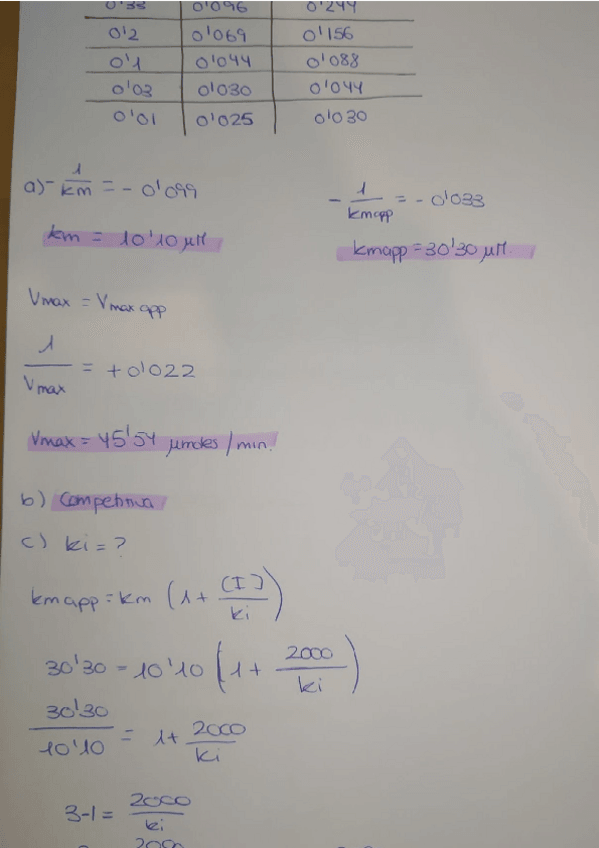 0'33 0'096 0'244
0'2 0'069 0'156
0'1 0'044 0'088
0'03 0'030 0'044
0'01 0'025 0'030
a) - 1/km = - 0'099
- 1/kmapp = - 0'033
km = 10'10 μM
kmapp = 30'30 μM.
Vmax = Vmax app
1/Vmax = + 0'022
Vmax = 45'54 μmoles / min.
b) Competitiva
c) ki = ?
kmapp = km (1 + [I]/ki)
30'30 = 10'10 (1 + 2000/ki)
30'30/10'10 = 1 + 2000/ki
3-1 = 2000/ki
2000